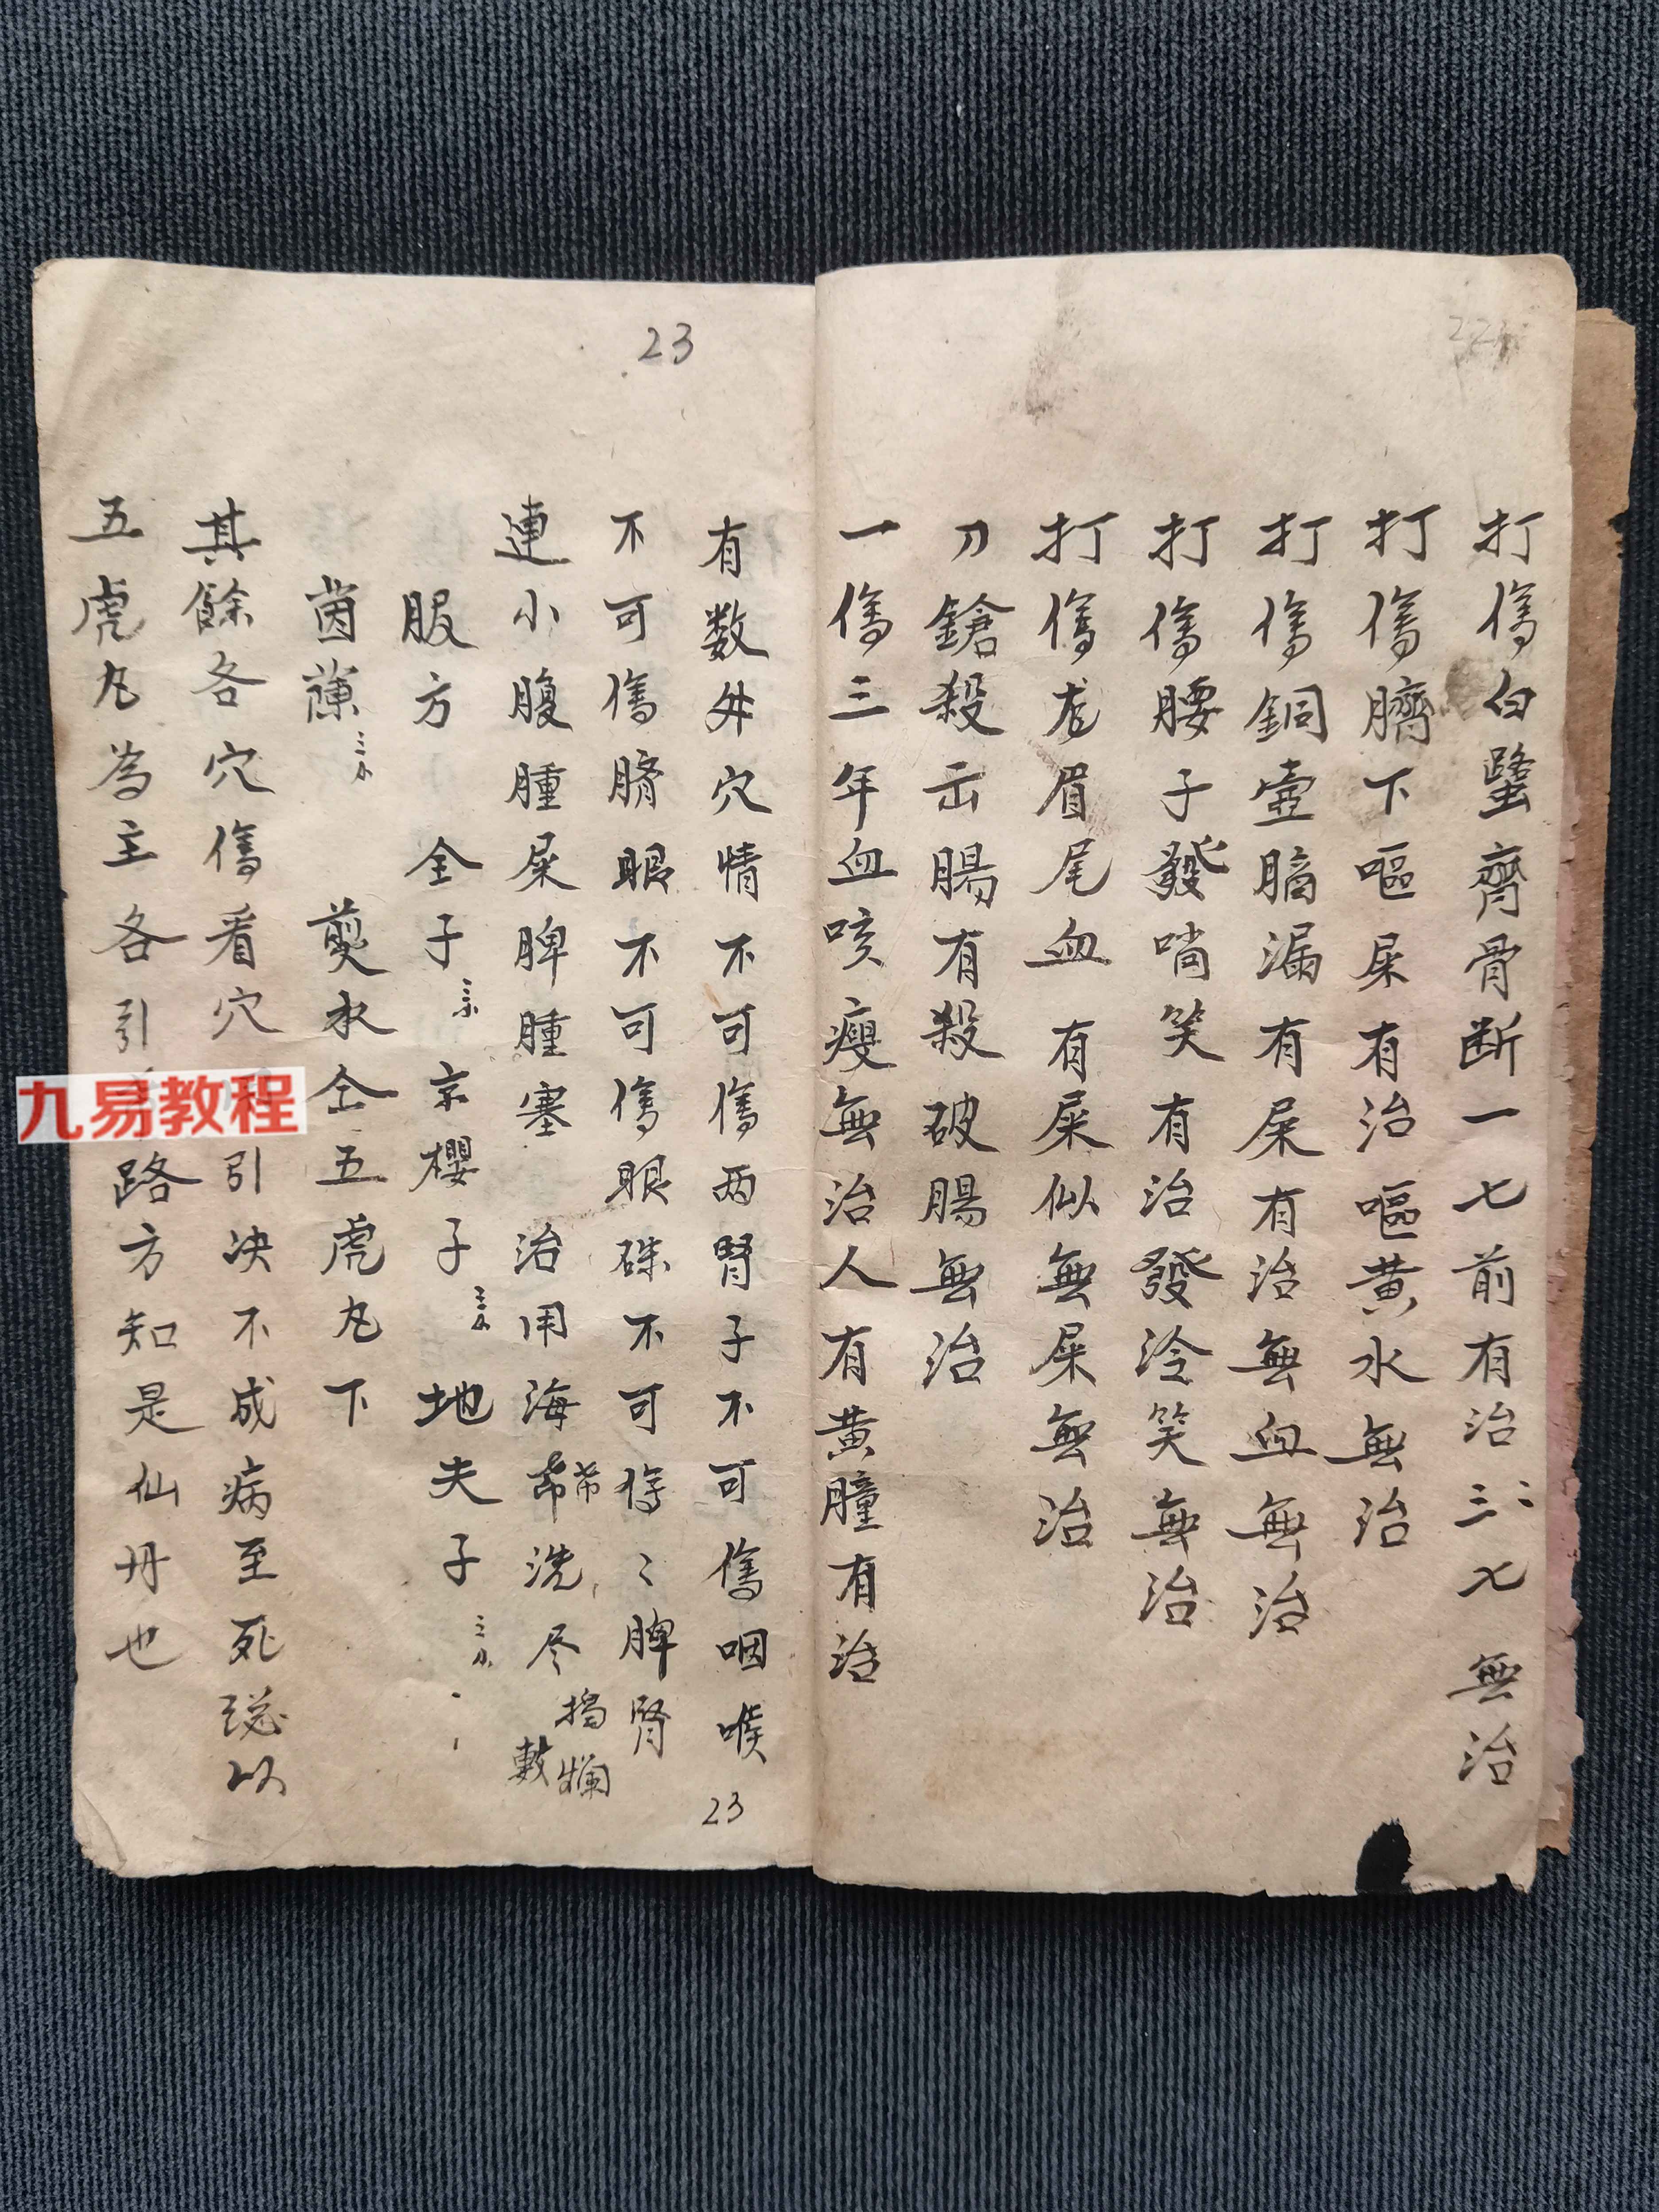 打傷白蹵齊骨断一七前有治三七無治
打傷臍下嘔屎有治嘔黄水無治
打傷銅壺腦漏有屎有治無血無治
打傷腰子發啃笑有治發泠笑無治
打傷尨眉尾血有屎似無屎無治
刀鎗殺出腸有殺破腸無治
一傷三年血咳瘦無治人有黄膧有治
23
有数外穴情不可傷两腎子不可傷咽喉
不可傷臍眼不可傷眼硃不可傷〻脾腎
連小腹腫屎脾腫塞 治用海希洗尽搗爛敷
服方 全子 京櫻子 地夫子
茵蔯 煎水仝五虎丸下
其餘各穴傷看穴引决不成病至死総以
五虎丸為主各引路方知是仙丹也
23
九易教程